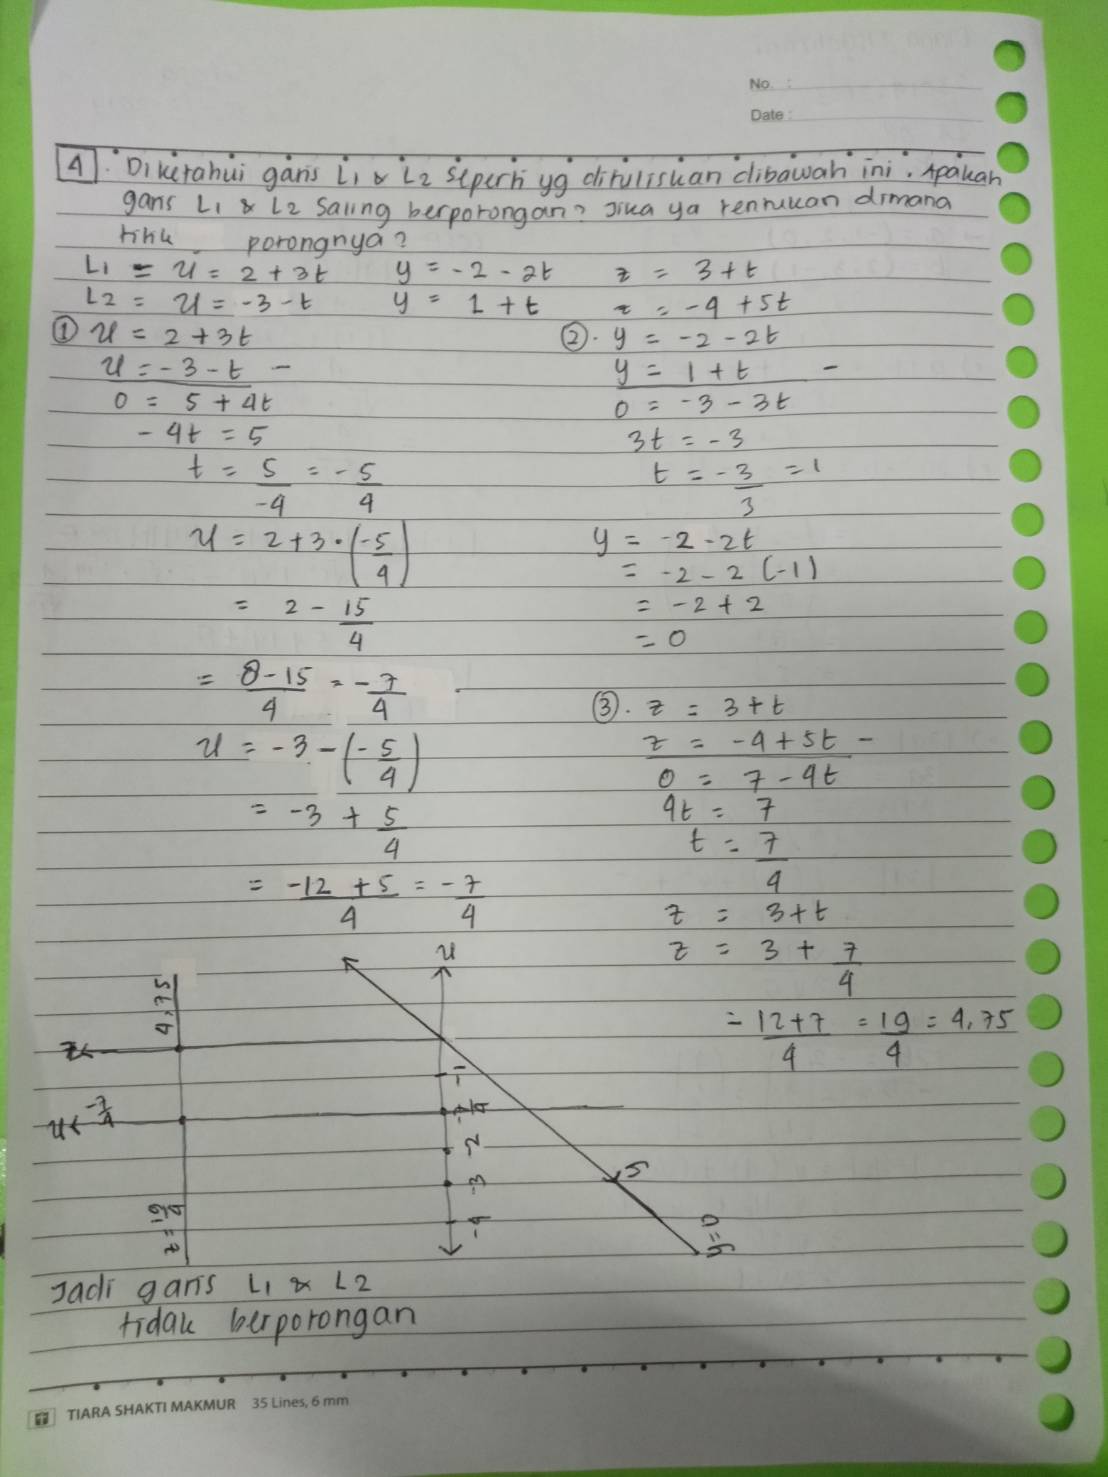 No. :
Date :
4. Diketahui garis L1 & L2 seperti yg dituliskan dibawah ini. Apakah
garis L1 & L2 Saling berpotongan? Jika ya tentukan dimana
titik potongnya?
L1 = x = 2 + 3t y = -2 - 2t z = 3 + t
L2 = x = -3 - t y = 1 + t z = -4 + 5t
① x = 2 + 3t
x = -3 - t -
0 = 5 + 4t
-4t = 5
t = 5/-4 = -5/4
x = 2 + 3 · (-5/4)
= 2 - 15/4
= 8-15/4 = -7/4
x = -3 - (-5/4)
= -3 + 5/4
= -12 + 5/4 = -7/4
②. y = -2 - 2t
y = 1 + t -
0 = -3 - 3t
3t = -3
t = -3/3 = 1
y = -2 - 2t
= -2 - 2 (-1)
= -2 + 2
= 0
③. z = 3 + t
z = -4 + 5t -
0 = 7 - 4t
4t = 7
t = 7/4
z = 3 + t
z = 3 + 7/4
= 12+7/4 = 19/4 = 4,75
x
4,75
z
-1
x -7/4
-7/4
-2
-3
5
-4
z = 19/4
y=0
Jadi garis L1 & L2
tidak berpotongan
TIARA SHAKTI MAKMUR 35 Lines, 6 mm